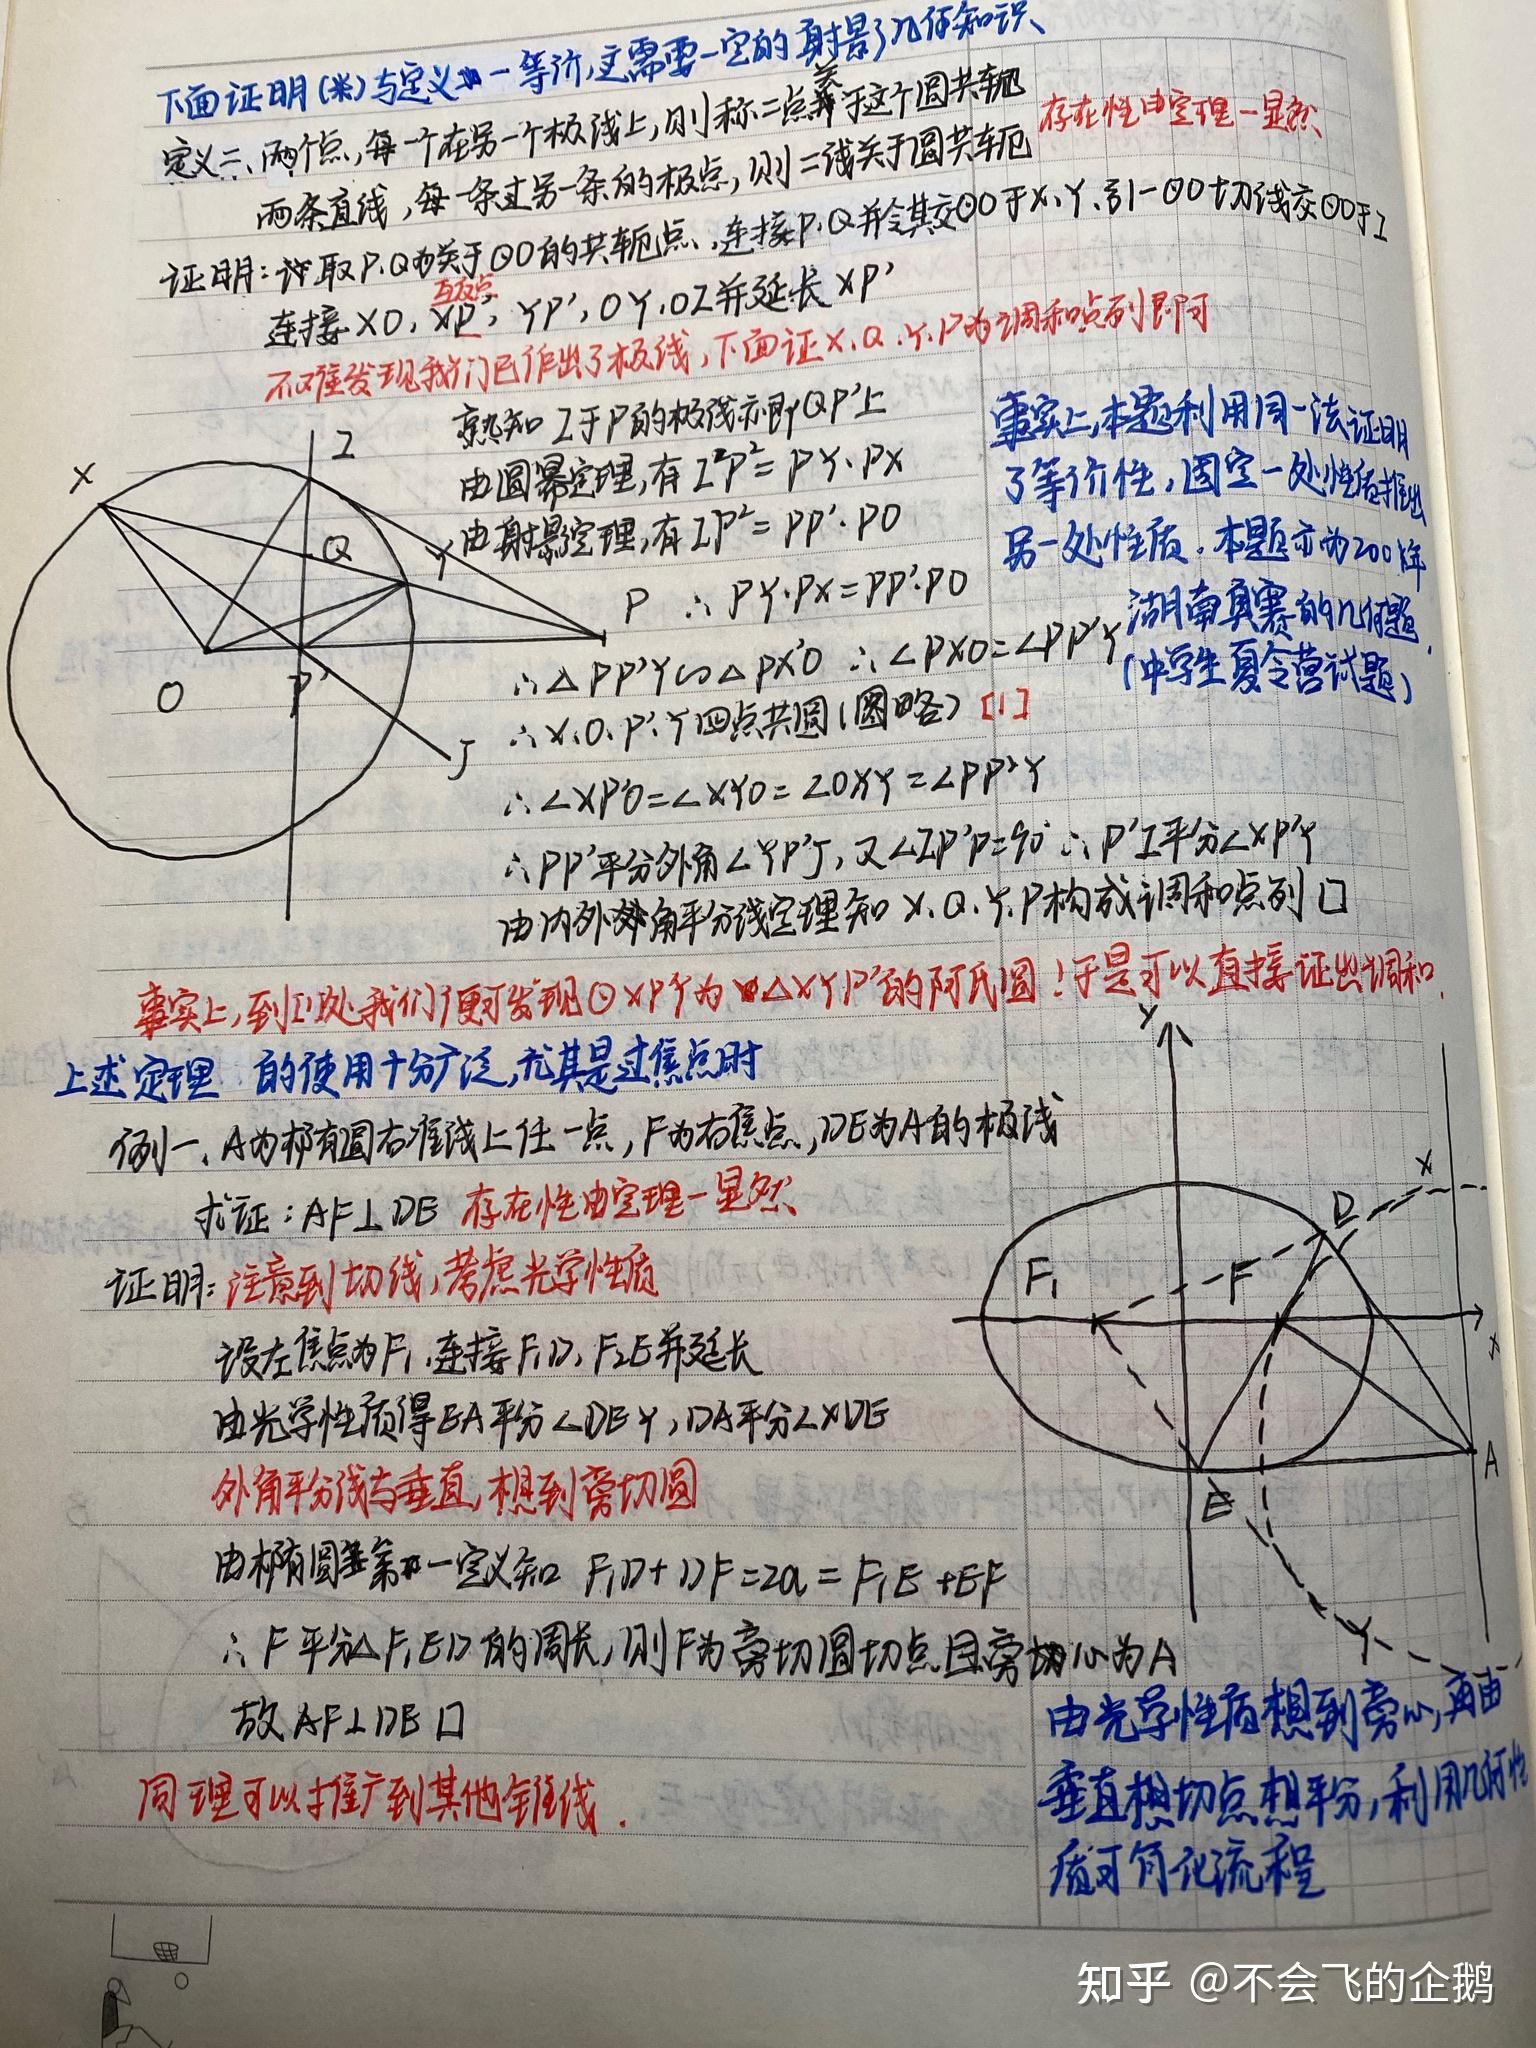 下面证明(※)与定义一等价,这需要一定的射影几何知识、
定义二、两个点,每一个在另一个极线上,则称二点关于这个圆共轭
存在性由定理一显然
两条直线,每一条过另一条的极点,则二线关于圆共轭
证明:许取P、Q为关于⊙O的共轭点、连接P、Q并令其交⊙O于X、Y、引一⊙O切线交⊙O于I
互反点
连接XO,XP',YP',OY、OI并延长XP'
不难发现我们已作出了极线,下面证X、Q、Y、P为调和点列即可
熟知I于P的极线亦即QP'上
由圆幂定理,有I²P²=PY·PX
由射影定理,有IP²=PP'·PO
∴PY·PX=PP'·PO
∴△PP'Y∽△PXO ∴∠PXO=∠PP'Y
∴X、O、P'、Y四点共圆(图略) [1]
∴∠XP'O=∠XYO=∠OXY=∠PP'Y
∴PP'平分外角∠YP'J,又∠IP'P=90° ∴P'I平分∠XP'Y
由内外角平分线定理知X、Q、Y、P构成调和点列□
事实上,本题利用同一法证明
了等价性,固定一处性质推出
另一处性质.本题亦为2001年
湖南真赛的几何题.
(中学生夏令营试题)
X
I
Q
Y
P
O
P'
J
事实上,到[1]处我们便可发现⊙XPY为△XYP'的阿氏圆!于是可以直接证出调和.
上述定理 的使用十分广泛,尤其是过焦点时
例一、A为椭圆右准线上任一点,F为右焦点,DE为A的极线
求证:AF⊥DE 存在性由定理一显然
证明:注意到切线,考虑光学性质
设左焦点为F₁,连接F₁D,F₂E并延长
由光学性质得EA平分∠DEY,DA平分∠XDE
外角平分线与垂直,想到旁切圆
由椭圆第一定义知 F₁D+DF=2a=F₁E+EF
∴F平分△F₁ED的周长,则F为旁切圆切点且旁心为A
故AF⊥DE□
同理可以推广到其他锥线.
y
X
D
F₁
F
x
A
E
Y
由光学性质想到旁心,再由
垂直想切点想平分,利用几何性
质可简化流程
知乎 @不会飞的企鹅